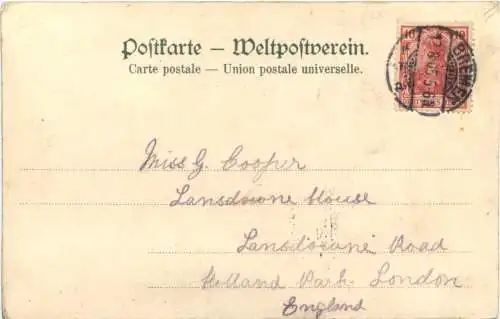 Postkarte – Weltpostverein.
Carte postale – Union postale universelle.
10 10
BREMEN
Miss G. Cooper
Lansdowne House
Lansdowne Road
Holland Park London
England